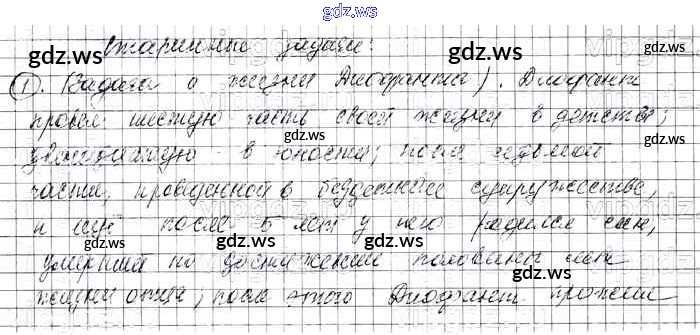 gdz.ws
Старинные задачи:
gdz.ws gdz.ws
1. (Задача о жизни Диофанта). Диофант
провел шестую часть своей жизни в детстве;
gdz.ws
двенадцатую - в юности; после седьмой
части, проведенной в бездетном супружестве,
gdz.ws gdz.ws
и ещё после 5 лет у него родился сын,
умерший по достижении половины лет
gdz.ws gdz.ws
жизни отца; после этого Диофант прожил